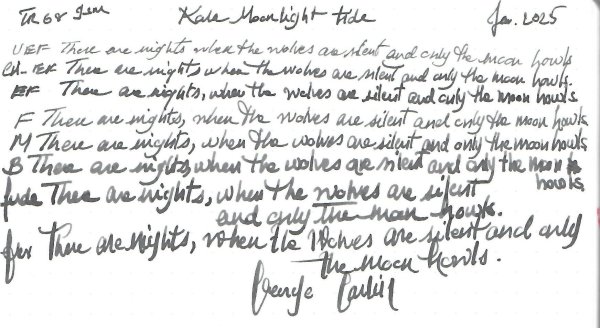 TR 68 gsm Kala Moonlight tide Jan. 2025
UEF There are nights when the wolves are silent and only the moon howls
EF There are nights when the wolves are silent and only the moon howls.
EF There are nights, when the wolves are silent and only the moon howls
F There are nights, when the wolves are silent and only the moon howls
M There are nights, when the wolves are silent and only the moon howls
B There are nights, when the wolves are silent and only the moon
howls
fude There are nights, when the wolves are silent
and only the moon howls.
There are nights, when the wolves are silent and only
the moon howls.
George Carlin